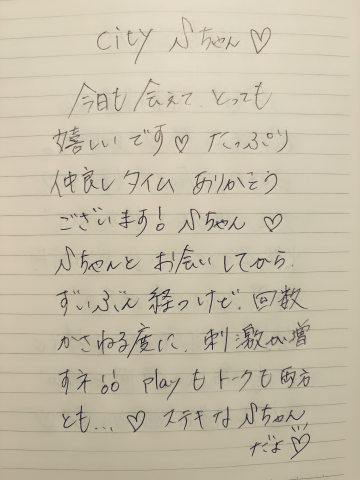 city Sちゃん♡
今日も 会えて、とっても
嬉しいです♡ たっぷり
仲良しタイム ありがとう
ございます! Sちゃん ♡
Sちゃんと お会いしてから、
ずいぶん 経つけど、回数
かさねる度に、刺激が増
すネ!! playもトークも両方
とも...♡ ステキな Sちゃん
だよ♡